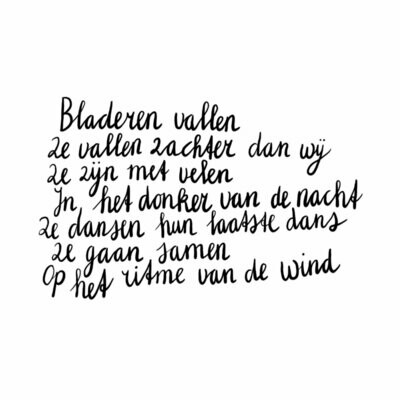 Bladeren vallen
Ze vallen zachter dan wij
Ze zijn met velen
In het donker van de nacht
Ze dansen hun laatste dans
Ze gaan samen
Op het ritme van de wind